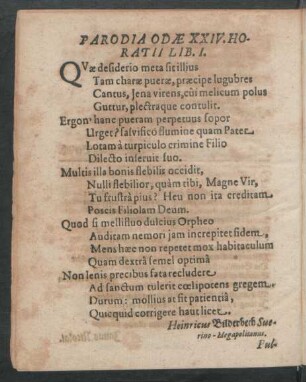 PARODIA ODÆ XXIV. HO-
RATII LIB. I.
QVæ desiderio meta sit illius
Tam charæ pueræ, præcipe lugubres
Cantus, Jena virens, cui melicum polus
Guttur, plectraque contulit.
Ergon' hanc pueram perpetuus sopor
Urget? salvifico flumine quam Pater
Lotam à turpiculo crimine Filio
Dilecto inseruit suo.
Multis illa bonis flebilis occidit,
Nulli flebilior, quàm tibi, Magne Vir,
Tu frustrà pius? Heu non ita creditam
Poscis Filiolam Deum.
Quod si mellifluo dulcius Orpheo
Auditam nemori jam increpitet fidem,
Mens hæc non repetet mox habitaculum
Quam dextrâ semel optimâ
Non lenis precibus fata recludere
Ad sanctum tulerit cœlipotens gregem.
Durum: mollius at fit patientiâ,
Quicquid corrigere haut licet.
Heinricus Bilderbech Sue-
rino-Megapolitanus.
Pul-